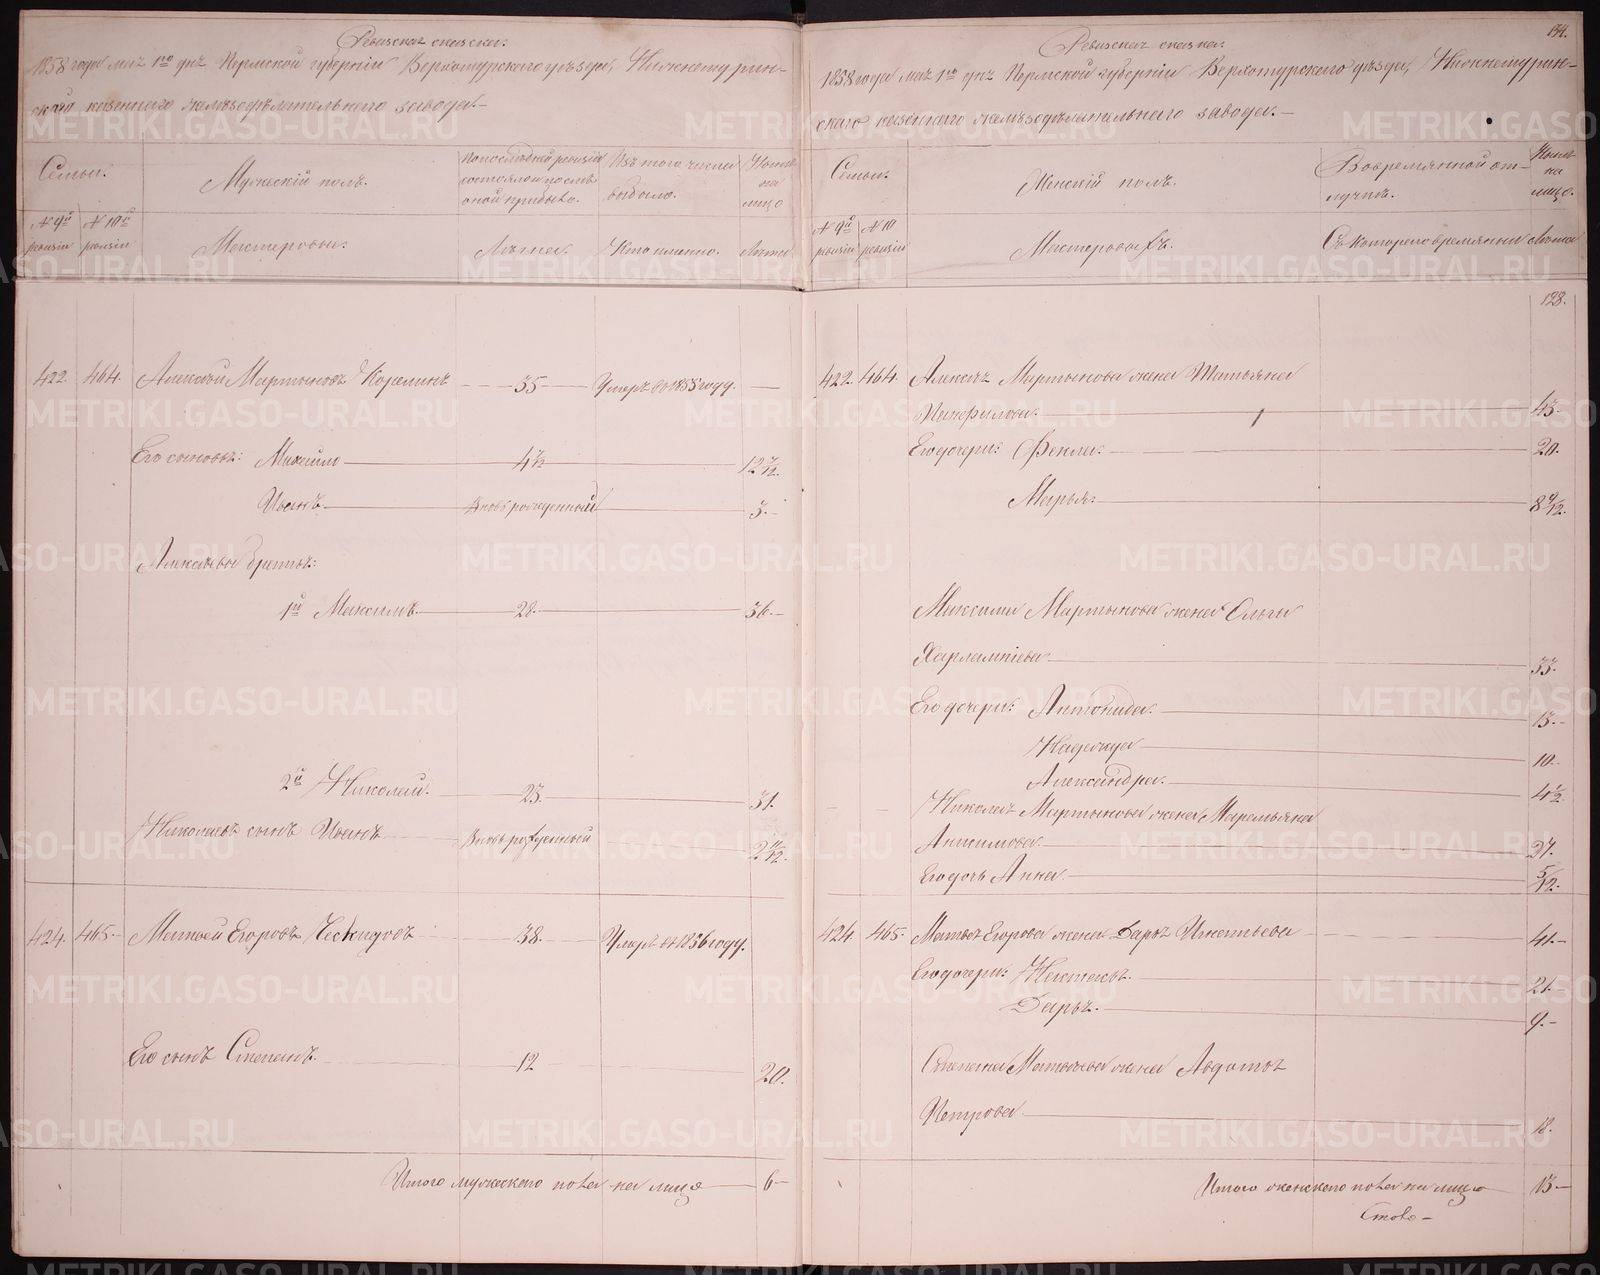 Ревизская сказка.
1858 года маія 1го дня Пермской губерніи Верхотурскаго уѣзда, Нижнетурин-
скаго казеннаго желѣзодѣлательнаго завода.
Семьи.
Мужескій полъ.
По последней ревизіи состояло и послѣ оной прибыло.
Изъ того числа выбыло.
Ныне на лицо
№ 9й ревизіи
№ 10й ревизіи
Мастеровые.
Лѣта.
Когда именно.
Лѣта
422. 464. Алексей Мартыновъ Корелинъ 35 Умеръ въ 1855 году.
Его сыновья: Михайло 4 7/12 12 7/12.
Иванъ Вновь рожденный 3.
Алексѣевы братья:
1й Максимъ 28. 36.
2й Николай. 23. 31.
Николаевъ сынъ Иванъ Вновь рожденный 2 11/12.
424. 465. Матвей Егоровъ Ческидовъ 38. Умеръ въ 1856 году.
Его сынъ Степанъ. 12 20.
Итого мужескаго пола на лицо 6
174.
Ревизская сказка.
1858 года маія 1го дня Пермской губерніи Верхотурскаго уѣзда, Нижнетурин-
скаго казеннаго желѣзодѣлательнаго завода.
Семьи.
Женскій полъ.
Во временной от-
лучкѣ.
Ныне на лицо.
№ 9й ревизіи
№ 10 ревизіи
Мастеровыхъ.
Съ котораго времяни
Лѣта
128.
422. 464. Алексея Мартынова жена Татьяна
Панфилова. 43.
Его дочери: Фекла. 20.
Марья. 8 9/12.
Максима Мартынова жена Ольга
Харлампіева 33.
Его дочери: Антонида. 13.
Надежда 10.
Александра.
Николая Мартынова жена Маремьяна
Анисимова. 27.
Его дочь Анна 5/12.
424. 465. Матвея Егорова жена Дарья Игнатьева 41.
Его дочери: Настасья. 21.
Дарья. 9.
Степана Матвеева жена Авдотья
Петрова 18.
Итого женскаго пола на лицо 13
METRIKI.GASO-URAL.RU